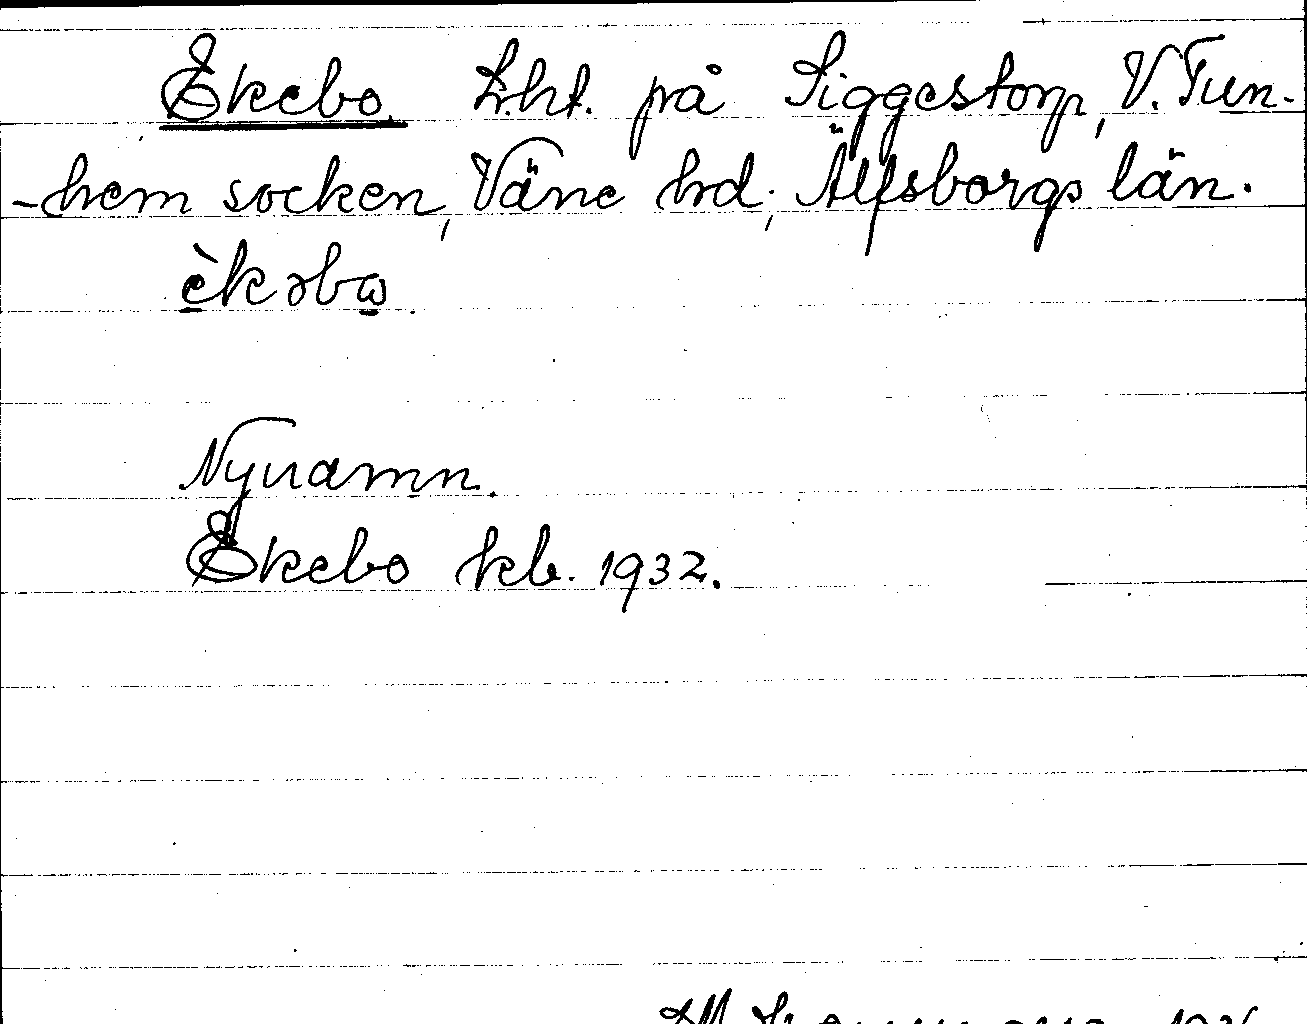 Ekebo. Lht. på Siggestorp, V. Tun-
-hem socken, Väne hd, Älfsborgs län.
èkəbω.
Nynamn.
Ekebo kb. 1932.